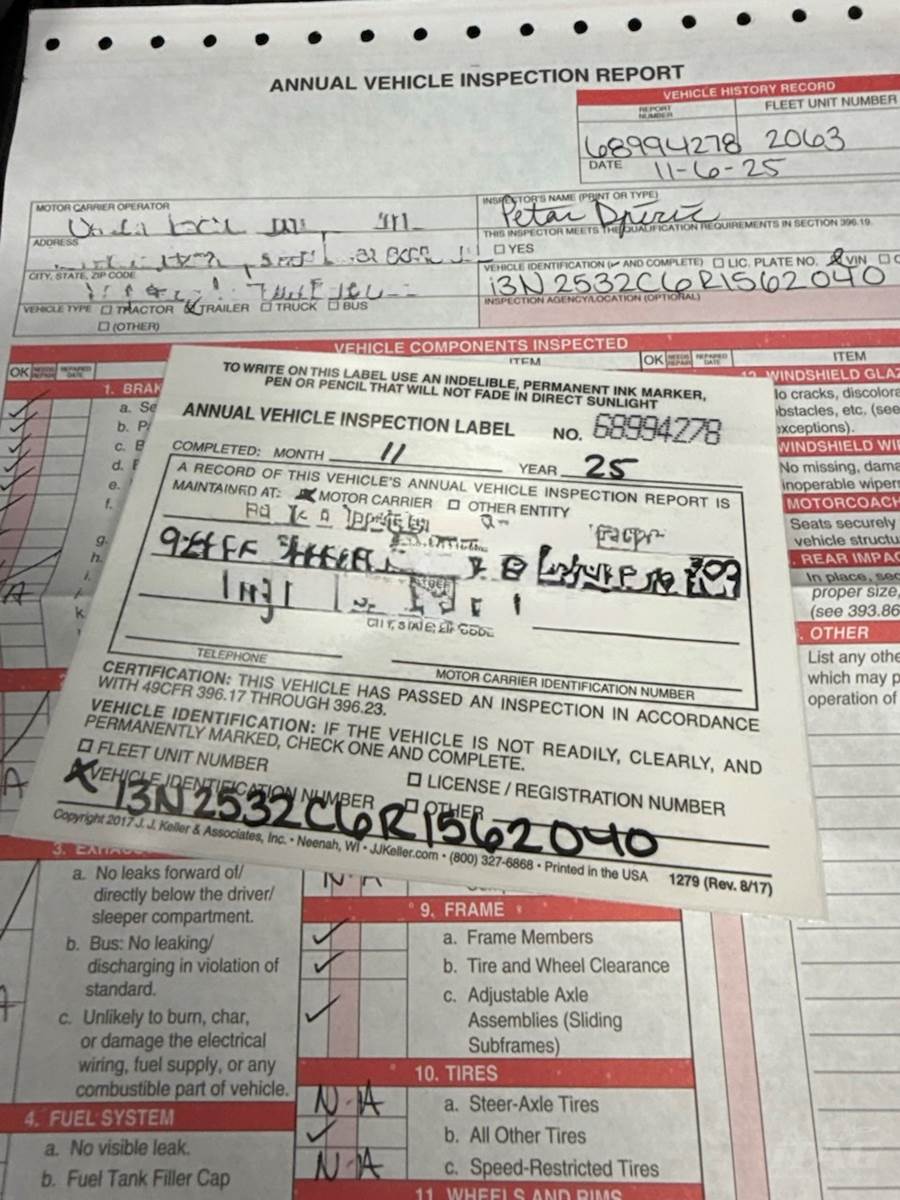 ANNUAL VEHICLE INSPECTION REPORT
VEHICLE HISTORY RECORD
REPORT NUMBER
FLEET UNIT NUMBER
68994278 2063
DATE 11-6-25
MOTOR CARRIER OPERATOR
INSPECTOR'S NAME (PRINT OR TYPE)
Petar
THIS INSPECTOR MEETS THE QUALIFICATION REQUIREMENTS IN SECTION 396.19.
ADDRESS
☐ YES
VEHICLE IDENTIFICATION (✓ AND COMPLETE) ☐ LIC. PLATE NO. ☑ VIN
CITY, STATE, ZIP CODE
13N2532C6R1562040
INSPECTION AGENCY/LOCATION (OPTIONAL)
VEHICLE TYPE ☐ TRACTOR ☑ TRAILER ☐ TRUCK ☐ BUS
☐ (OTHER)
VEHICLE COMPONENTS INSPECTED
OK NEEDS REPAIR REPAIRED DATE
ITEM
OK NEEDS REPAIR REPAIRED DATE
ITEM
1. BRAK
a. Se
b. P
c. B
d.
e.
f.
g.
h.
i.
k.
TO WRITE ON THIS LABEL USE AN INDELIBLE, PERMANENT INK MARKER,
PEN OR PENCIL THAT WILL NOT FADE IN DIRECT SUNLIGHT
ANNUAL VEHICLE INSPECTION LABEL NO. 68994278
COMPLETED: MONTH 11 YEAR 25
A RECORD OF THIS VEHICLE'S ANNUAL VEHICLE INSPECTION REPORT IS
MAINTAINED AT: ☒ MOTOR CARRIER ☐ OTHER ENTITY
CITY, STATE, ZIP CODE
TELEPHONE
MOTOR CARRIER IDENTIFICATION NUMBER
CERTIFICATION: THIS VEHICLE HAS PASSED AN INSPECTION IN ACCORDANCE
WITH 49CFR 396.17 THROUGH 396.23.
VEHICLE IDENTIFICATION: IF THE VEHICLE IS NOT READILY, CLEARLY, AND
PERMANENTLY MARKED, CHECK ONE AND COMPLETE.
☐ FLEET UNIT NUMBER
☐ LICENSE / REGISTRATION NUMBER
☒ VEHICLE IDENTIFICATION NUMBER ☐ OTHER
13N2532C6R1562040
Copyright 2017 J. J. Keller & Associates, Inc. • Neenah, WI • JJKeller.com • (800) 327-6868 • Printed in the USA 1279 (Rev. 8/17)
WINDSHIELD GLAZ
No cracks, discolora
obstacles, etc. (see
exceptions).
WINDSHIELD WI
No missing, dama
inoperable wipers
MOTORCOACH
Seats securely
vehicle structu
REAR IMPAC
In place, sec
proper size,
(see 393.86
OTHER
List any othe
which may p
operation of
3. EXHAUS
a. No leaks forward of/
directly below the driver/
sleeper compartment.
b. Bus: No leaking/
discharging in violation of
standard.
c. Unlikely to burn, char,
or damage the electrical
wiring, fuel supply, or any
combustible part of vehicle.
4. FUEL SYSTEM
a. No visible leak.
b. Fuel Tank Filler Cap
N-A
9. FRAME
✓ a. Frame Members
✓ b. Tire and Wheel Clearance
✓ c. Adjustable Axle
Assemblies (Sliding
Subframes)
10. TIRES
N-A a. Steer-Axle Tires
✓ b. All Other Tires
N-A c. Speed-Restricted Tires
11. WHEELS AND RIMS